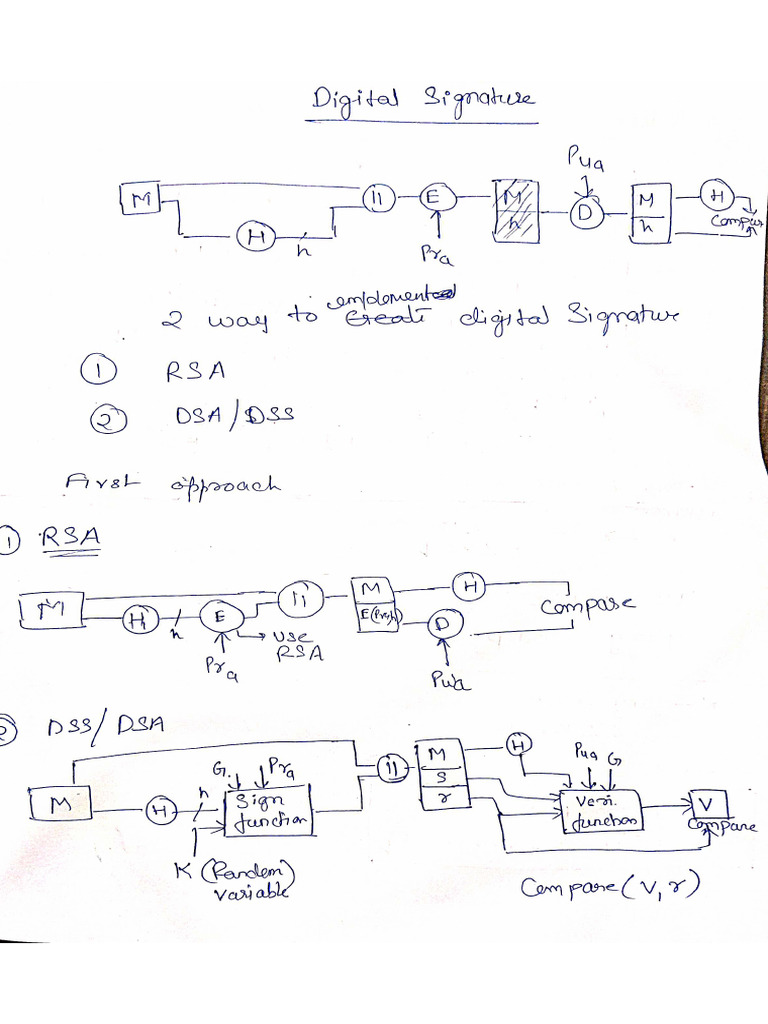 Digital Signature
Pua
M || E M h D M h H
H h Pra Compare
emplemented
2 way to Create digital Signature
1 RSA
2 DSA/DSS
First approach
1 RSA
M H h E || M H
E(Pra,h) D Compare
Pra use RSA Pua
2 DSS/DSA
G Pra || M S r H Pua G
M H h Sign function Veri. function V
Compare
K (Random) variable
Compare (V, r)